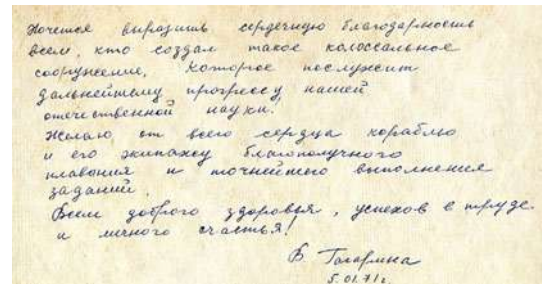 Хочется выразить сердечную благодарность
всем, кто создал такое колоссальное
сооружение, которое послужит
дальнейшему прогрессу нашей
отечественной науки.
Желаю от всего сердца кораблю
и его экипажу благополучного
плавания и точнейшего выполнения
заданий.
Всем доброго здоровья, успехов в труде
и личного счастья!
В. Гагарина
5.01.71г.